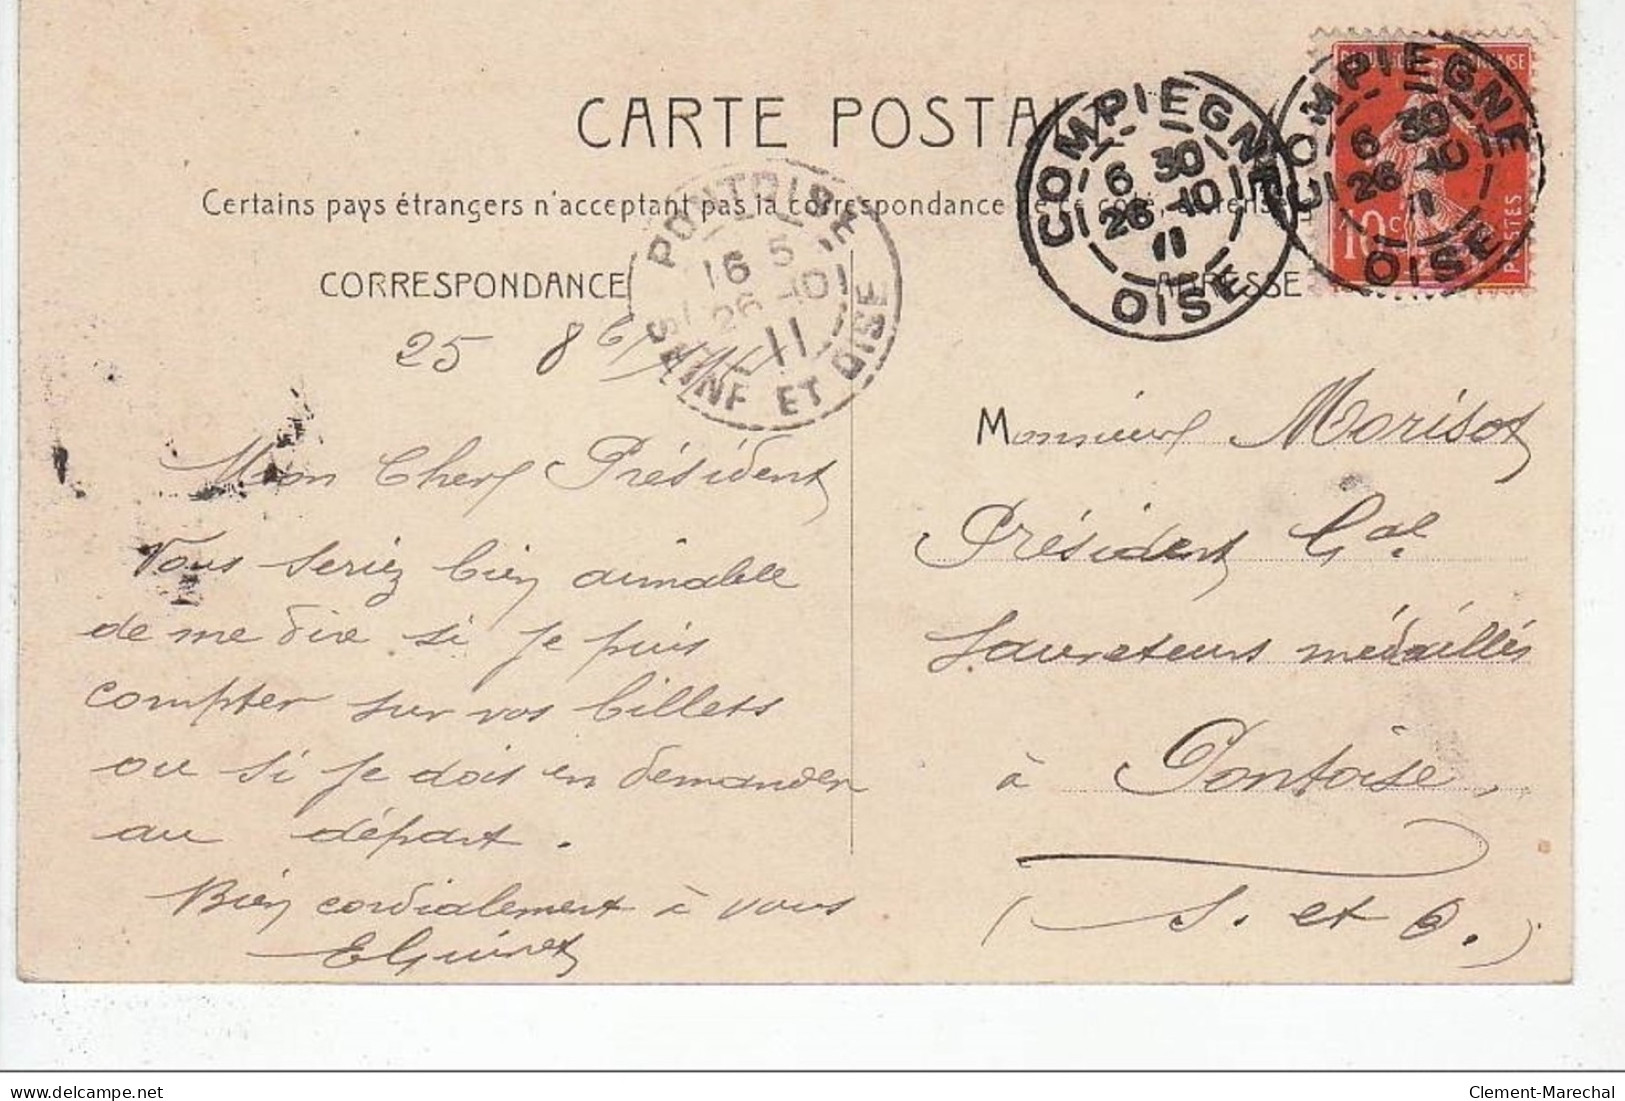 CARTE POSTAL
Certains pays étrangers n'acceptant pas la correspondance de ce côté, se renseigner
CORRESPONDANCE
ADRESSE
COMPIEGNE
6 30
26 -10
11
OISE
COMPIEGNE
6 30
26 -10
11
OISE
10c
POSTES
PONTOISE
16 5
26 -10
11
SEINE ET OISE
25 8bre 1911
Mon Cher Président
Vous seriez bien aimable
de me dire si je puis
compter sur vos billets
ou si je dois en demander
au départ.
Bien cordialement à vous
EGuinet
Monsieur Morisot
Président Gal
Sauveteurs médaillés
à Pontoise,
(S. et O.)
delcampe.net
Clement-Marechal